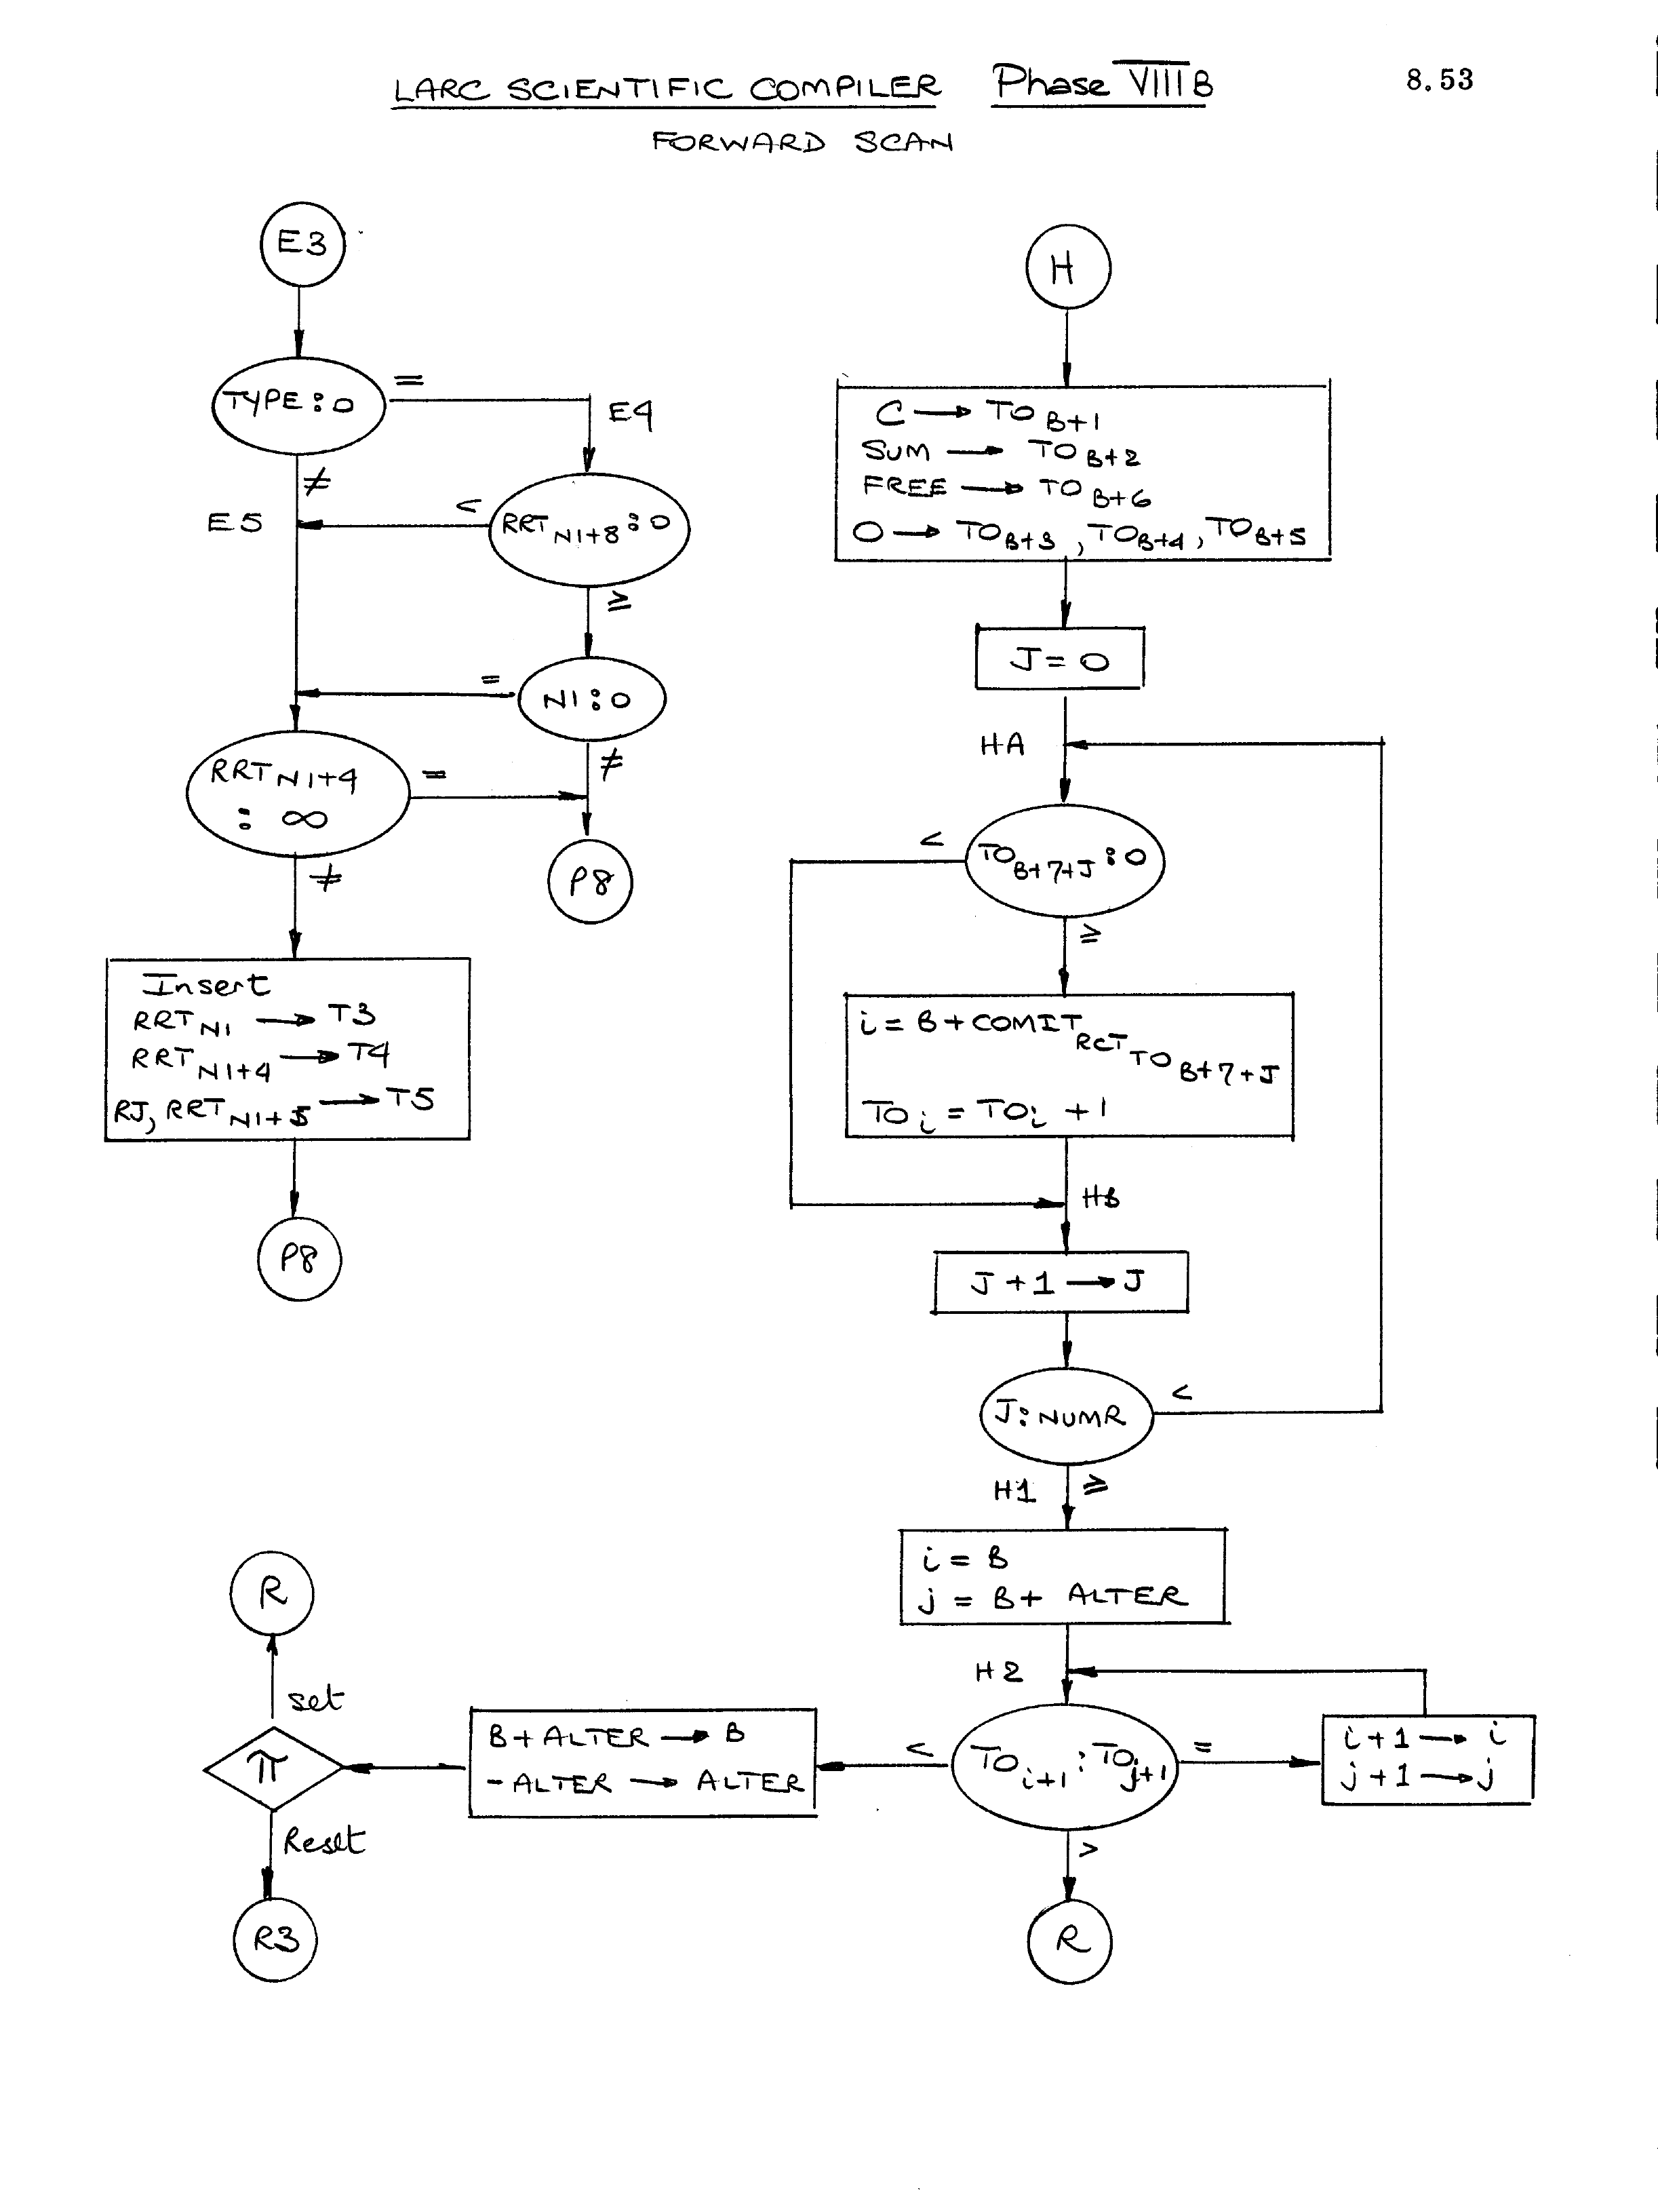 LARC SCIENTIFIC COMPILER Phase VIII B 8.53
FORWARD SCAN
E3
TYPE : 0
=
E4
≠
E5
<
RRT N1+8 : 0
≥
=
N1 : 0
≠
RRT N1+4
: ∞
=
P8
≠
Insert
RRT N1 → T3
RRT N1+4 → T4
RJ, RRT N1+5 → T5
P8
H
C → TO B+1
SUM → TO B+2
FREE → TO B+6
0 → TO B+3 , TO B+4 , TO B+5
J = 0
HA
<
TO B+7+J : 0
≥
i = B + COMIT RCT TO B+7+J
TO i = TO i + 1
HB
J + 1 → J
J : NUMR
<
H1
≥
i = B
j = B + ALTER
H2
TO i+1 : TO j+1
=
i + 1 → i
j + 1 → j
<
B + ALTER → B
- ALTER → ALTER
>
R
π
set
R
Reset
R3